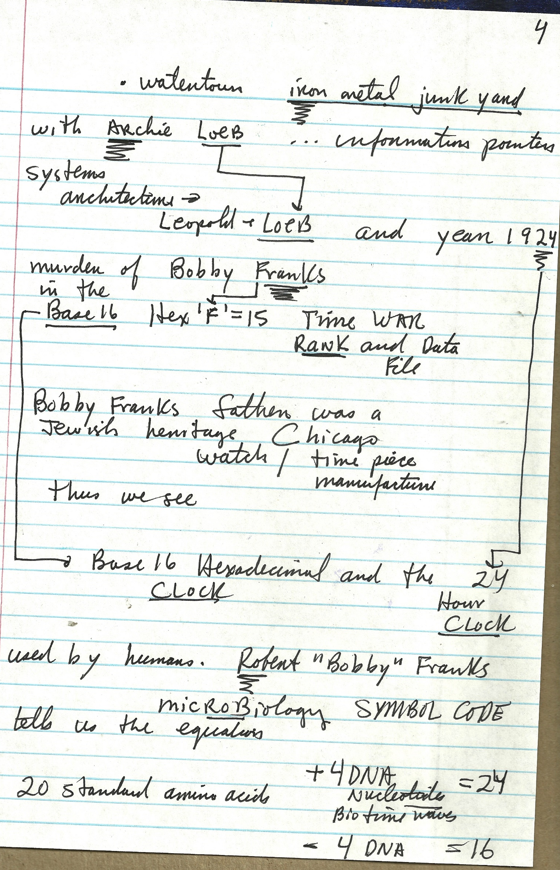 4
• watertown iron metal junk yard
with Archie LoeB ... information pointers
systems
architecture →
Leopold - LoeB and year 1924
murder of Bobby Franks
in the
Base 16 Hex 'F' = 15 Time WAR
RANK and Data
File
Bobby Franks father was a
Jewish heritage Chicago
watch / time piece
manufacture
thus we see
Base 16 Hexadecimal and the 24
CLOCK Hour
CLOCK
used by humans. Robert "Bobby" Franks
micROBiology SYMBOL CODE
tells us the equations
20 standard amino acids +4 DNA = 24
Nucleotides
Bio time waves
- 4 DNA = 16